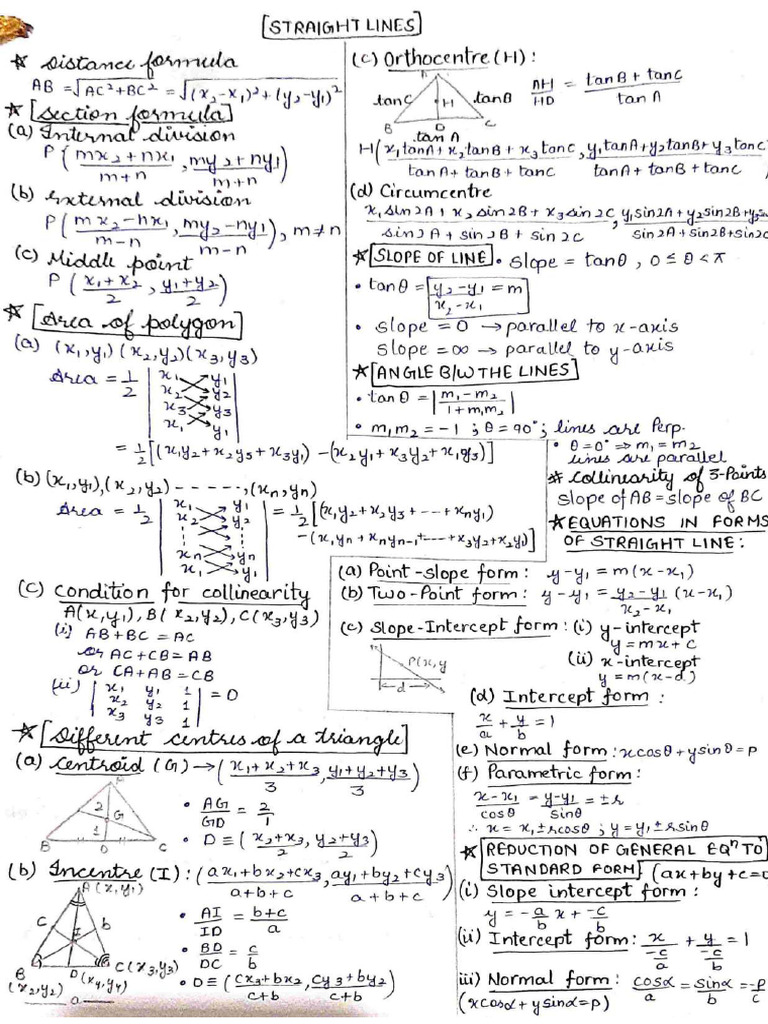 STRAIGHT LINES
* Distance formula
AB = √AC²+BC² = √(x₂-x₁)²+(y₂-y₁)²
* Section formula
(a) Internal division
P(mx₂+nx₁/m+n, my₂+ny₁/m+n)
(b) External division
P(mx₂-nx₁/m-n, my₂-ny₁/m-n), m≠n
(c) Middle point
P(x₁+x₂/2, y₁+y₂/2)
* Area of polygon
(a) (x₁,y₁)(x₂,y₂)(x₃,y₃)
Area = 1/2 |
x₁ y₁
x₂ y₂
x₃ y₃
x₁ y₁
|
= 1/2[(x₁y₂+x₂y₃+x₃y₁) -(x₂y₁+x₃y₂+x₁y₃)]
(b) (x₁,y₁),(x₂,y₂) - - - - -,(xₙ,yₙ)
Area = 1/2 |
x₁ y₁
x₂ y₂
⋮ ⋮
xₙ yₙ
x₁ y₁
| = 1/2[(x₁y₂+x₂y₃+---+xₙy₁)
-(x₁yₙ+xₙyₙ₋₁+---+x₃y₂+x₂y₁)]
(c) Condition for collinearity
A(x₁,y₁), B(x₂,y₂), C(x₃,y₃)
(i) AB+BC = AC
or AC+CB = AB
or CA+AB = CB
(ii) |
x₁ y₁ 1
x₂ y₂ 1
x₃ y₃ 1
| = 0
* Different centres of a triangle
(a) Centroid (G) → (x₁+x₂+x₃/3, y₁+y₂+y₃/3)
A
2
G
1
B D C
• AG/GD = 2/1
• D ≡ (x₂+x₃/2, y₂+y₃/2)
(b) Incentre (I): (ax₁+bx₂+cx₃/a+b+c, ay₁+by₂+cy₃/a+b+c)
A(x₁,y₁)
c b
I
B D C(x₃,y₃)
(x₂,y₂) (x₄,y₄)
a
• AI/ID = b+c/a
• BD/DC = c/b
• D ≡ (cx₃+bx₂/c+b, cy₃+by₂/c+b)
(c) Orthocentre (H):
A
tanC H tanB
B D C
tan A
AH/HD = tanB + tanC/tan A
H(x₁tanA + x₂tanB + x₃tanC/tanA + tanB + tanC, y₁tanA+y₂tanB+y₃tanC/tanA + tanB + tanC)
(d) Circumcentre
x₁sin2A + x₂sin2B + x₃sin2C/sin2A + sin2B + sin2C, y₁sin2A+y₂sin2B+y₃/sin2A+sin2B+sin2C
* SLOPE OF LINE • Slope = tanθ, 0 ≤ θ < π
• tanθ = y₂-y₁/x₂-x₁ = m
• slope = 0 → parallel to x-axis
slope = ∞ → parallel to y-axis
* ANGLE B/W THE LINES
• tanθ = |m₁-m₂/1+m₁m₂|
• m₁m₂ = -1 ; θ = 90°; lines are Perp.
• θ=0° ⇒ m₁=m₂
lines are parallel
* Collinearity of 3-Points
Slope of AB = slope of BC
* EQUATIONS IN FORMS
OF STRAIGHT LINE:
(a) Point-slope form: y-y₁ = m(x-x₁)
(b) Two-Point form: y-y₁ = y₂-y₁/x₂-x₁ (x-x₁)
(c) Slope-Intercept form: (i) y-intercept
y = mx + c
(ii) x-intercept
y = m(x-d)
P(x,y
d
(d) Intercept form:
x/a + y/b = 1
(e) Normal form: xcosθ + ysinθ = p
(f) Parametric form:
x-x₁/cosθ = y-y₁/sinθ = ±r
∴ x = x₁±rcosθ ; y = y₁±rsinθ
* REDUCTION OF GENERAL EQⁿ TO
STANDARD FORM (ax+by+c=0
(i) Slope intercept form:
y = -a/b x + -c/b
(ii) Intercept form: x/-c/a + y/-c/b = 1
iii) Normal form: cosα/a = sinα/b = -p/c
(xcosα + ysinα = p)